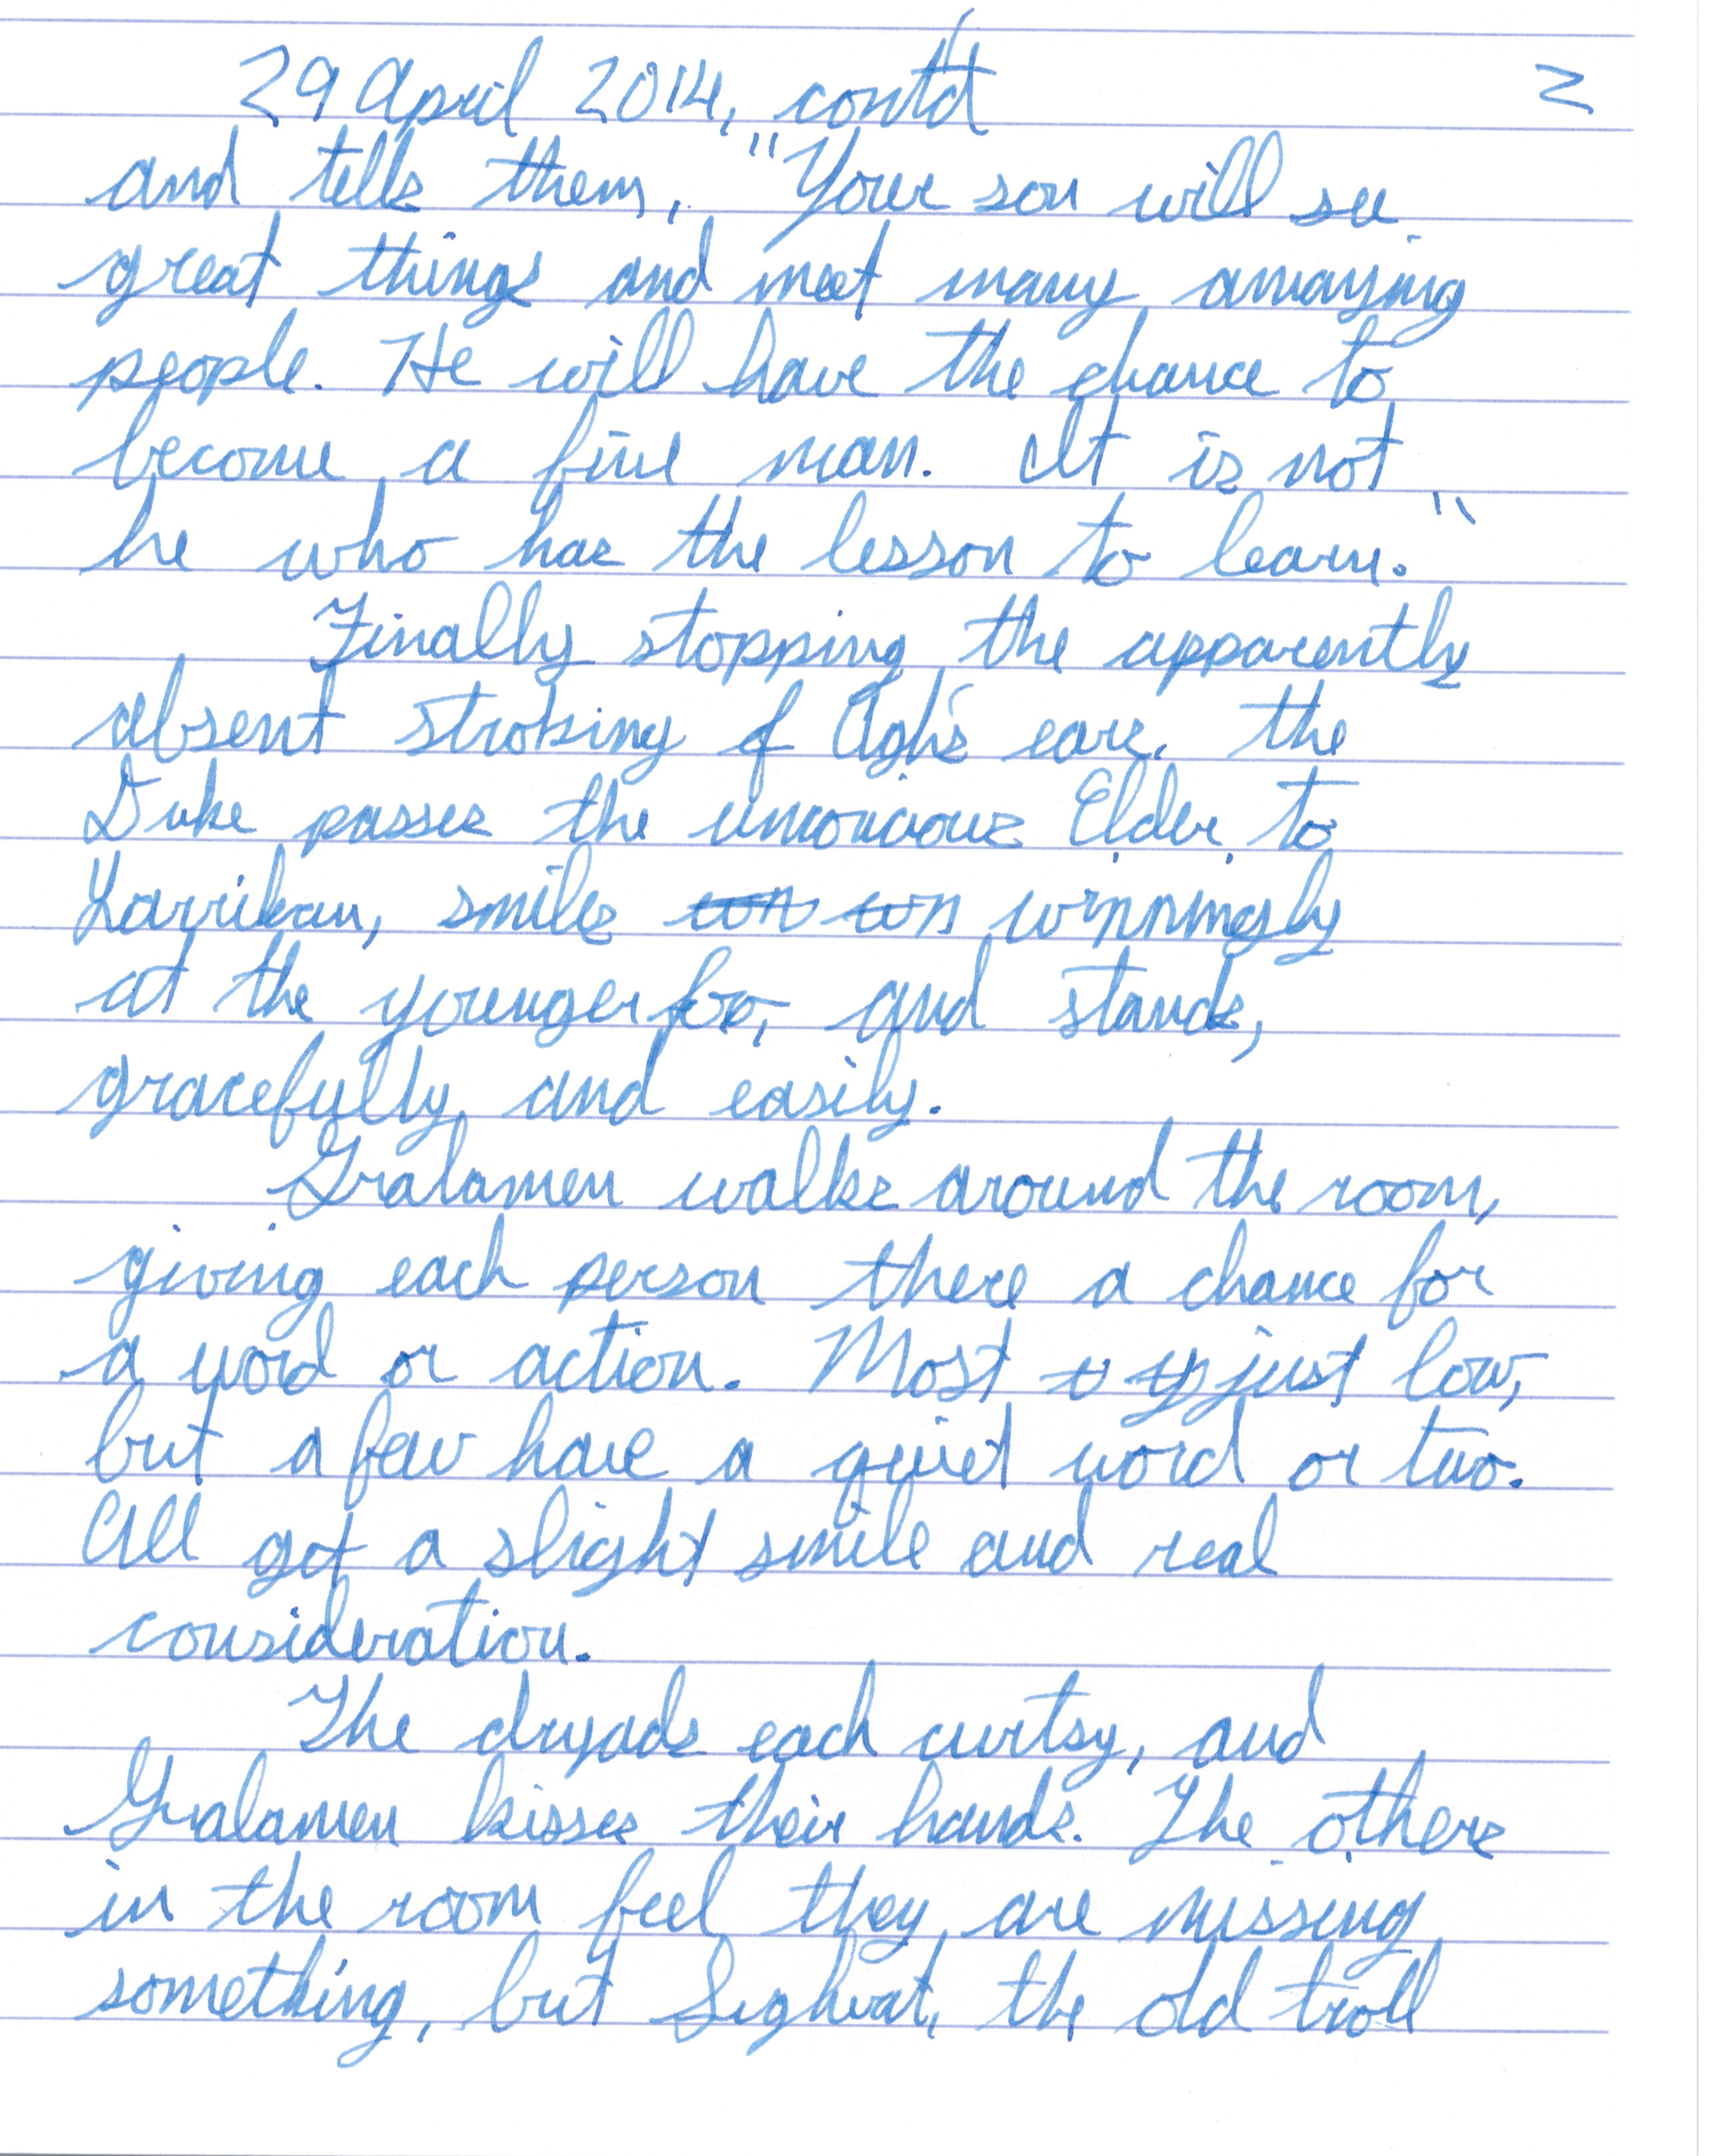 29 April 2014, cont'd 2
and tells them, "Your son will see
great things and meet many amazing
people. He will have the chance to
become a fine man. It is not
he who has the lesson to learn."
Finally stopping the apparently
absent stroking of Agh's ears, the
Duke passes the Elder to
smiles winningly
at the younger and stands,
gracefully and easily.
Gralamen walks around the room,
giving each person there a chance for
a word or action. Most just bow,
but a few have a quiet word or two.
All get a slight smile and real
consideration.
The dryads each curtsy, and
Gralamen kisses their hands. The others
in the room feel they are missing
something, but Sighvat, the old troll